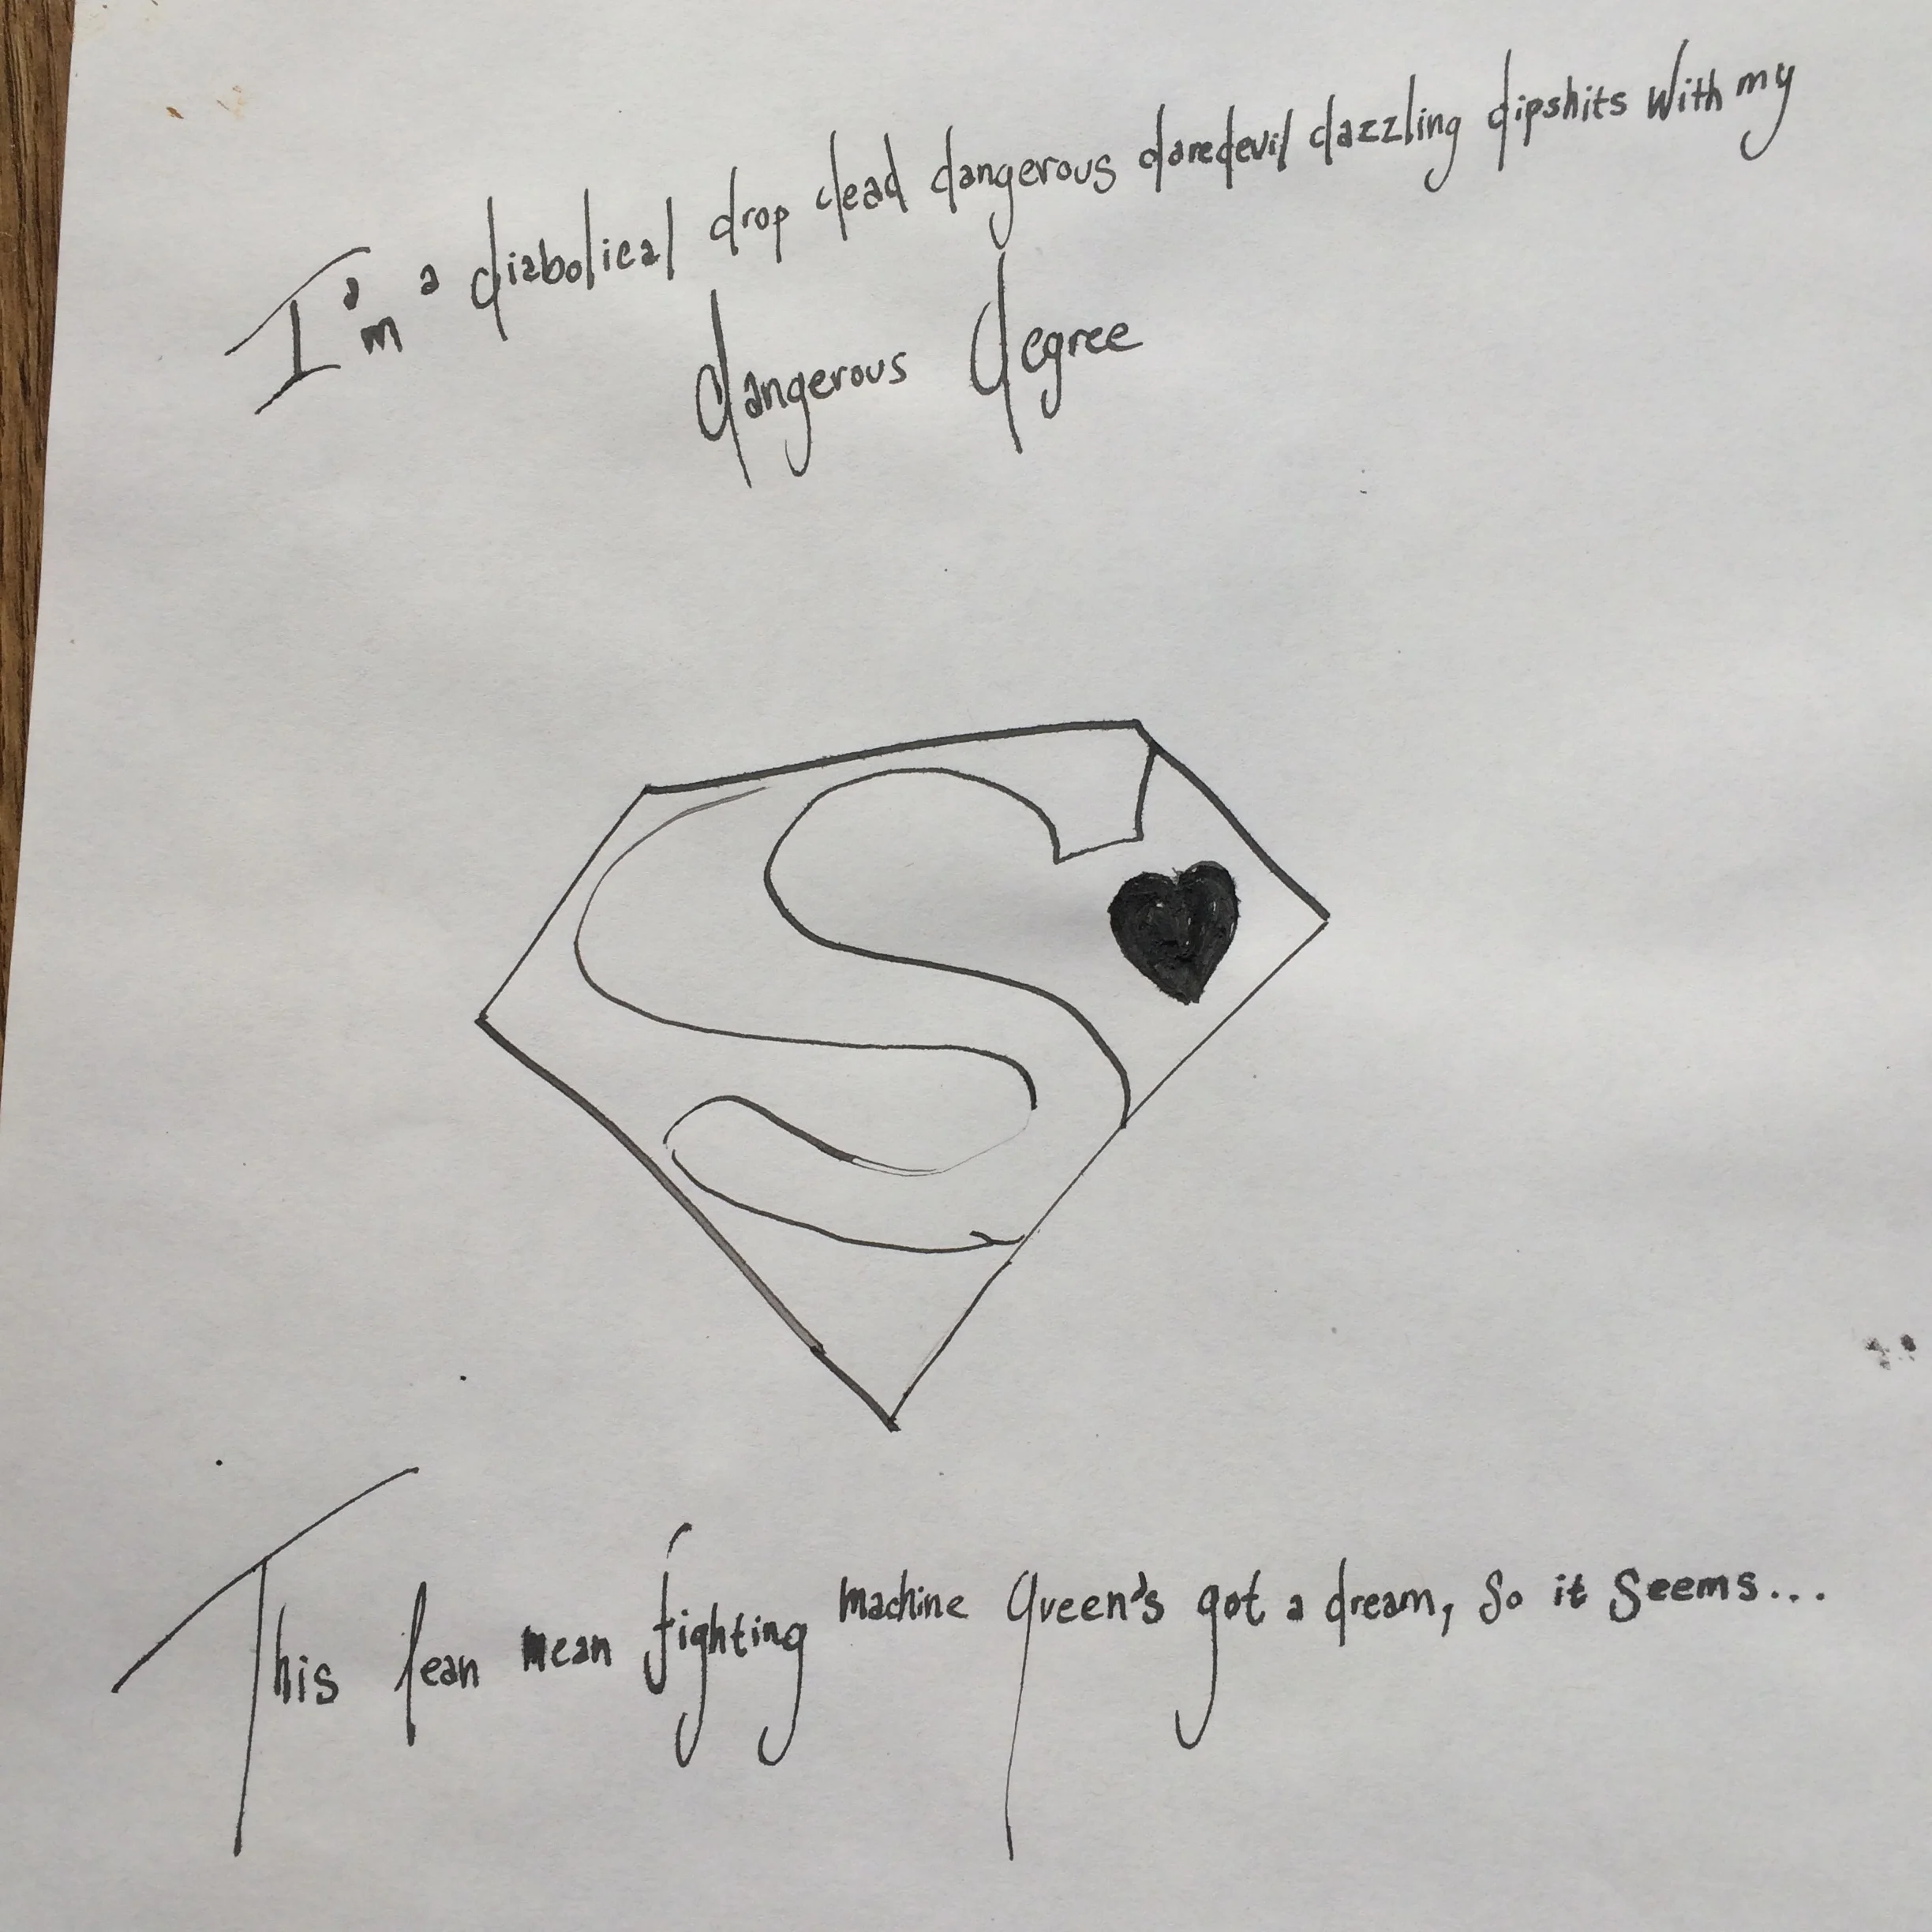 I'm a diabolical drop dead dangerous daredevil dazzling dipshits with my
dangerous degree
S
This lean mean fighting machine Queen's got a dream, so it seems...